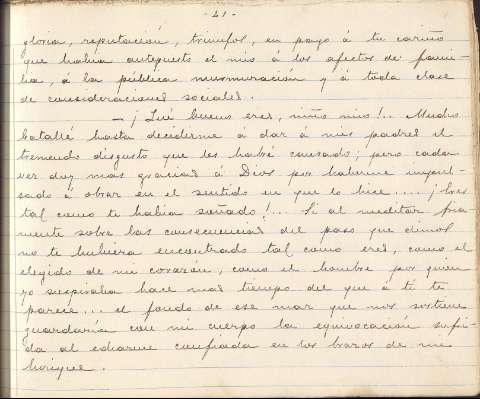 - 41 -
gloria, reputación, triunfos, en pago á tu cariño
que había antepuesto el mio á los afectos de fami-
lia, á la pública murmuración y á toda clase
de consideraciones sociales.
— ¡Qué bueno eres, niño mio!.. Mucho
batallé hasta decidirme á dar á mis padres el
tremendo disgusto que les habré causado; pero cada
vez doy mas gracias á Dios por haberme impul-
sado á obrar en el sentido en que lo hice.... ¡Eres
tal como te había soñado!... Si al meditar fria
mente sobre las consecuencias del paso que dimos
no te hubiera encontrado tal como eres, como el
elegido de mi corazón, como el hombre por quien
yo suspiraba hace mas tiempo del que á ti te
parece... el fondo de ese mar que nos sostiene
guardaria con mi cuerpo la equivocación sufri-
da al echarme confiada en los brazos de mi